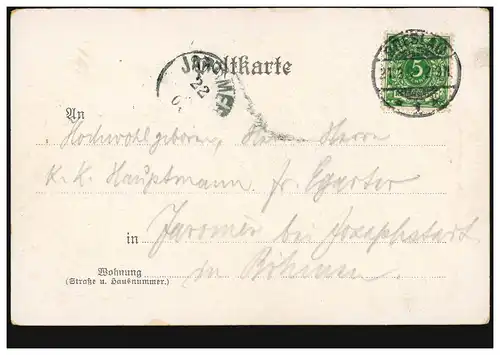 Postkarte
JAROMER
22
BRESLAU
5
An
Hochwohlgeboren, Herrn Herrn
K. K. Hauptmann Fr. Egarter
in Jaromer bei Josephstadt
in Böhmen.
Wohnung
(Straße u. Hausnummer.)